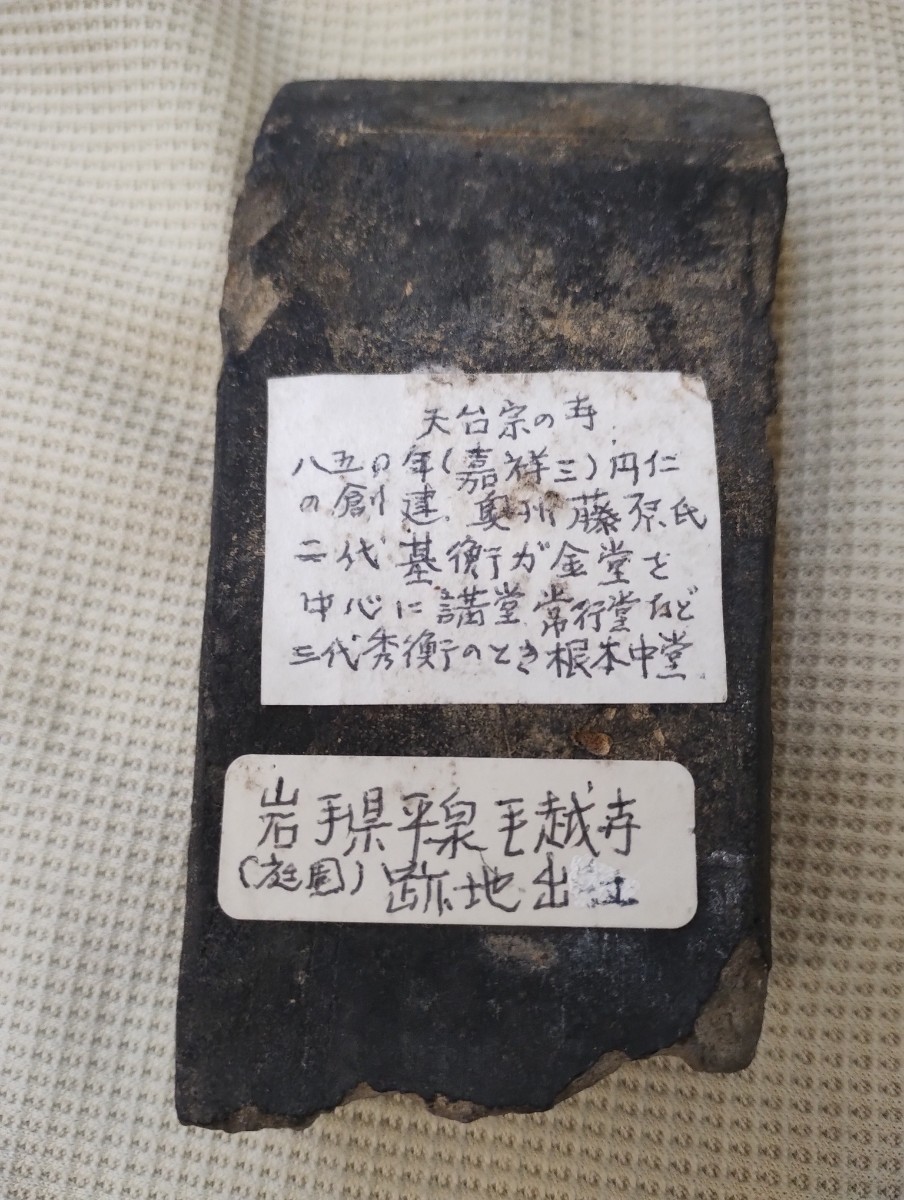 天台宗の寺
八五〇年(嘉祥三)円仁
の創建 奥州藤原氏
二代基衡が金堂を
中心に講堂常行堂など
三代秀衡のとき根本中堂
岩手県平泉毛越寺
(庭園)跡地出土